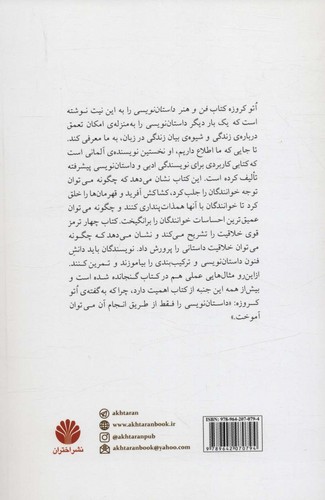 اُتو کروزه کتاب فن و هنر داستان‌نویسی را به این نیت نوشته
است که یک بار دیگر داستان‌نویسی را به‌منزله‌ی امکان تعمق
درباره‌ی زندگی و شیوه‌ی بیان زندگی در زبان، به ما معرفی کند.
تا جایی که ما اطلاع داریم، او نخستین نویسنده‌ی آلمانی است
که کتابی کاربردی برای نویسندگی ادبی و داستان‌نویسی پیشرفته
تألیف کرده است. این کتاب نشان می‌دهد که چگونه می‌توان
توجه خوانندگان را جلب کرد، کشاکش آفرید و قهرمان‌ها را خلق
کرد تا خوانندگان با آنها همذات‌پنداری کنند و چگونه می‌توان
عمیق‌ترین احساسات خوانندگان را برانگیخت. کتاب چهار ترمز
قوی خلاقیت را تشریح می‌کند و نشان می‌دهد که چگونه
می‌توان خلاقیت داستانی را پرورش داد. نویسندگان باید دانش
فنون داستان‌نویسی و ترکیب‌بندی را بیاموزند و تمرین کنند.
ازاین‌رو مثال‌هایی عملی هم در کتاب گنجانده شده است و
بیش از همه این جنبه از کتاب اهمیت دارد، چرا که به‌گفته‌ی اُتو
کروزه: «داستان‌نویسی را فقط از طریق انجام آن می‌توان
آموخت.»
نشر اختران
akhtaran
www.akhtaranbook.ir
@akhtaranpub
akhtaranbook@yahoo.com
ISBN: 978-964-207-079-4
9789642070794